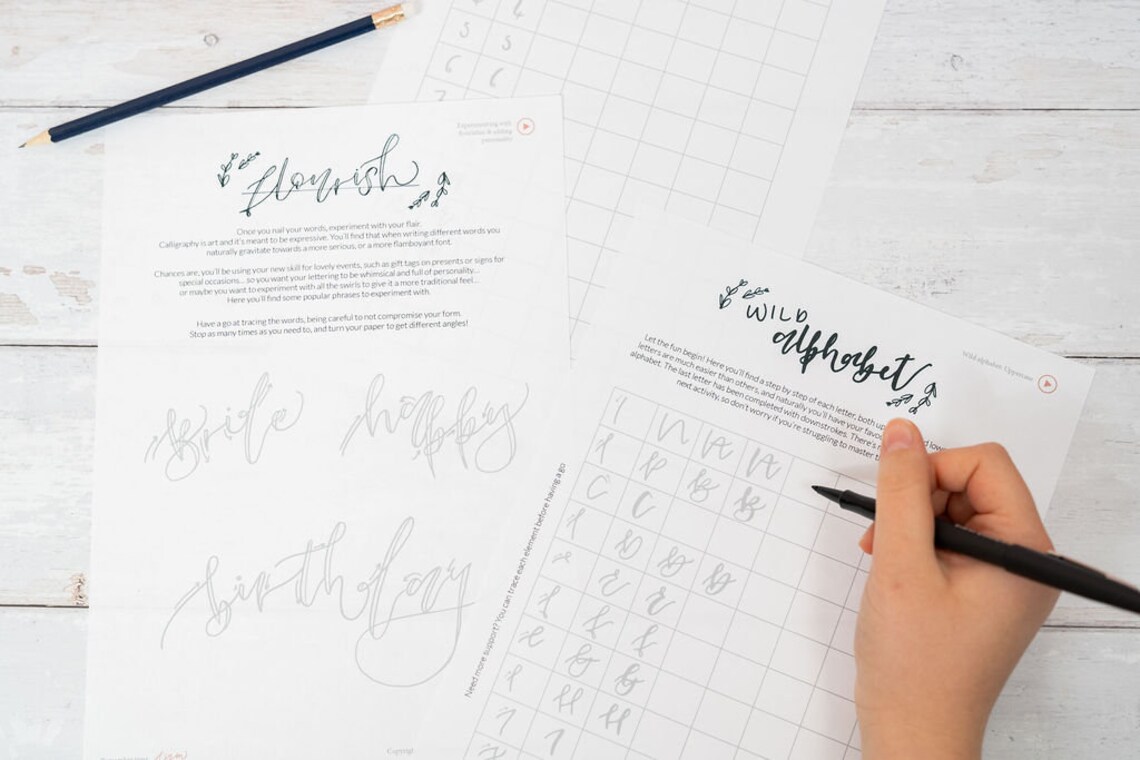 Experimenting with
flourishes & adding
personality
flourish
Once you nail your words, experiment with your flair.
Calligraphy is art and it's meant to be expressive. You'll find that when writing different words you
naturally gravitate towards a more serious, or a more flamboyant font.
Chances are, you'll be using your new skill for lovely events, such as gift tags on presents or signs for
special occasions... so you want your lettering to be whimsical and full of personality...
or maybe you want to experiment with all the swirls to give it a more traditional feel...
Here you'll find some popular phrases to experiment with.
Have a go at tracing the words, being careful to not compromise your form.
Stop as many times as you need to, and turn your paper to get different angles!
Bride happy
birthday
Copyrigh
Wild alphabet: Uppercase
WILD
alphabet
Let the fun begin! Here you'll find a step by step of each letter, both up
letters are much easier than others, and naturally you'll have your favou and low
alphabet. The last letter has been completed with downstrokes. There's
next activity, so don't worry if you're struggling to master
Need more support? You can trace each element before having a go
A A
B B
C C
D D D
E E
F F
G G
H H